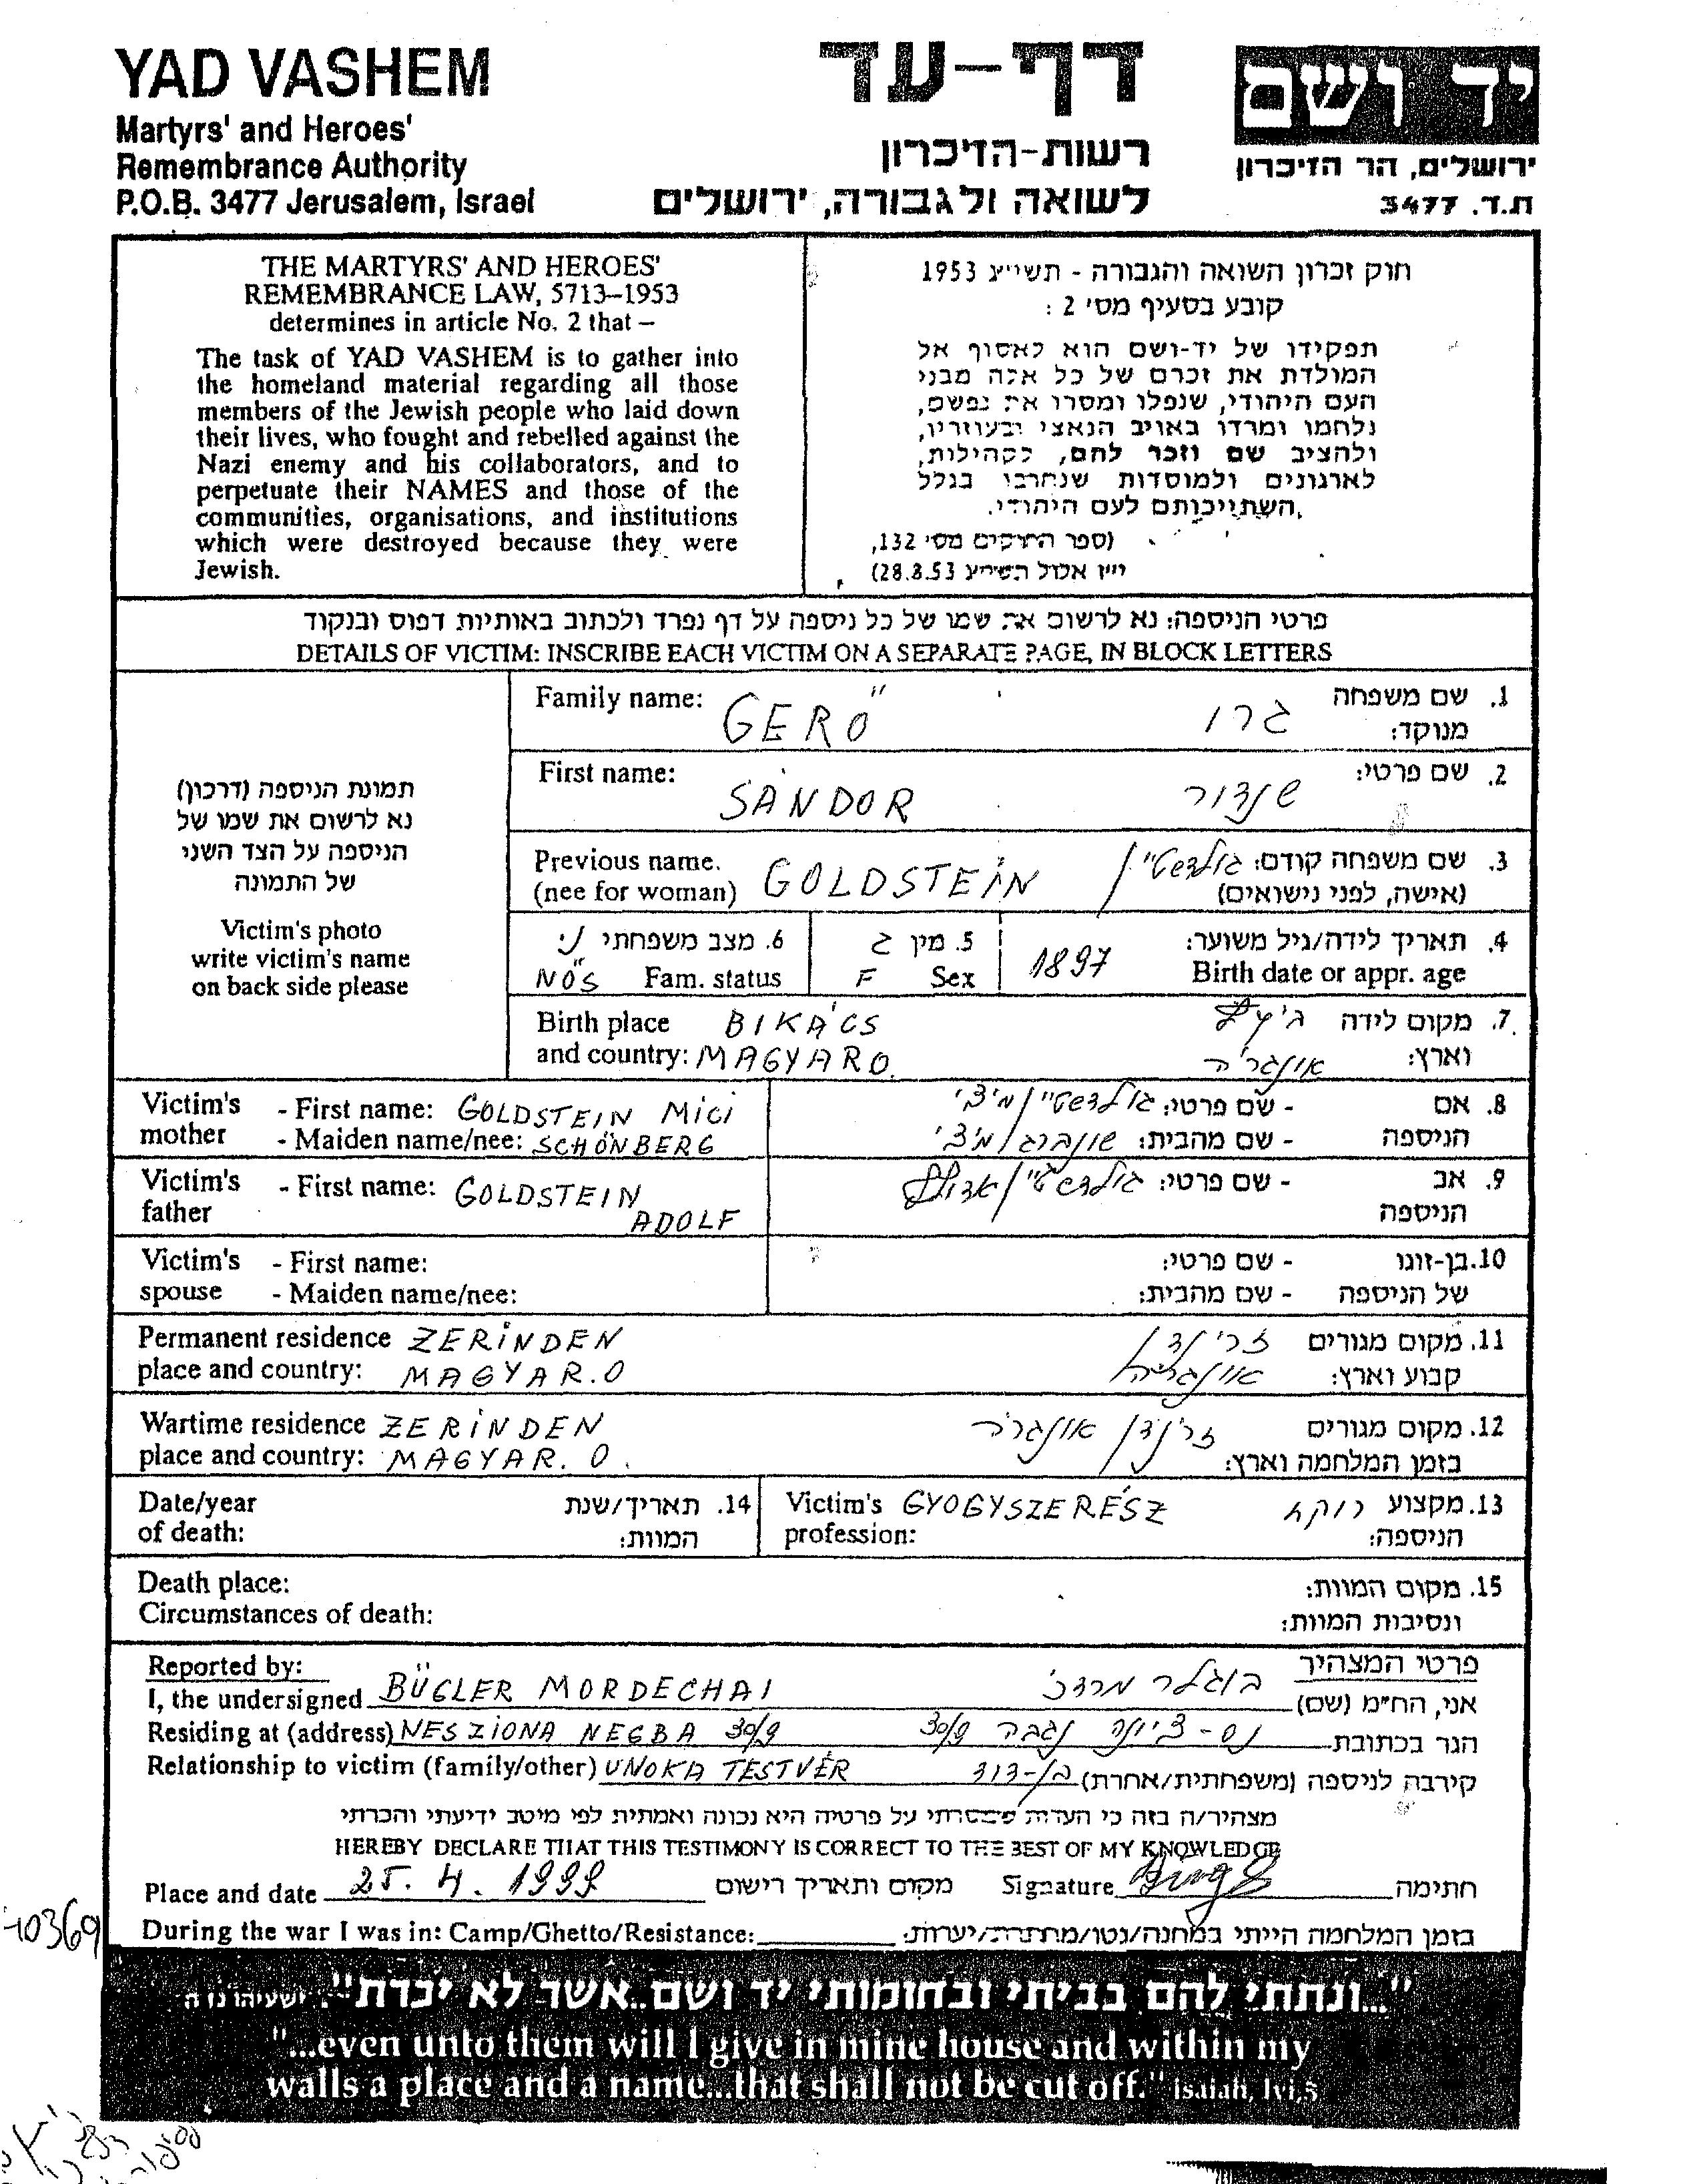 YAD VASHEM
Martyrs' and Heroes'
Remembrance Authority
P.O.B. 3477 Jerusalem, Israel
דף-עד
רשות-הזיכרון
לשואה ולגבורה, ירושלים
יד ושם
ירושלים, הר הזיכרון
ת.ד. 3477
THE MARTYRS' AND HEROES'
REMEMBRANCE LAW, 5713–1953
determines in article No. 2 that –
The task of YAD VASHEM is to gather into
the homeland material regarding all those
members of the Jewish people who laid down
their lives, who fought and rebelled against the
Nazi enemy and his collaborators, and to
perpetuate their NAMES and those of the
communities, organisations, and institutions
which were destroyed because they were
Jewish.
חוק זכרון השואה והגבורה - תשי״ג 1953
קובע בסעיף מס׳ 2 :
תפקידו של יד-ושם הוא לאסוף אל
המולדת את זכרם של כל אלה מבני
העם היהודי, שנפלו ומסרו את נפשם,
נלחמו ומרדו באויב הנאצי ובעוזריו,
ולהציב שם וזכר להם, לקהילות,
לארגונים ולמוסדות שנחרבו בגלל
השתייכותם לעם היהודי.
(ספר החוקים מס׳ 132,
י״ז אלול תשי״ג 28.8.53)
פרטי הניספה: נא לרשום את שמו של כל ניספה על דף נפרד ולכתוב באותיות דפוס ובנקוד
DETAILS OF VICTIM: INSCRIBE EACH VICTIM ON A SEPARATE PAGE, IN BLOCK LETTERS
תמונת הניספה (דרכון)
נא לרשום את שמו של
הניספה על הצד השני
של התמונה
Victim's photo
write victim's name
on back side please
Family name: GERŐ גרו 1. שם משפחה
מנוקד:
First name: SÁNDOR שנדור 2. שם פרטי:
Previous name. GOLDSTEIN גולדשטיין 3. שם משפחה קודם:
(nee for woman) (אישה, לפני נישואים)
6. מצב משפחתי נ׳ 5. מין ז 4. תאריך לידה/גיל משוער:
NŐS Fam. status F Sex 1897 Birth date or appr. age
Birth place BIKÁCS 7. מקום לידה
and country: MAGYARO. אונגריה וארץ:
Victim's - First name: GOLDSTEIN MICI גולדשטיין מיצי - שם פרטי: 8. אם
mother - Maiden name/nee: SCHÖNBERG שונברג מיצי - שם מהבית: הניספה
Victim's - First name: GOLDSTEIN גולדשטיין אדולף - שם פרטי: 9. אב
father ADOLF הניספה
Victim's - First name: - שם פרטי: 10. בן-זוגו
spouse - Maiden name/nee: - שם מהבית: של הניספה
Permanent residence ZERINDEN זרינדן 11. מקום מגורים
place and country: MAGYAR.O אונגריה קבוע וארץ:
Wartime residence ZERINDEN זרינדן אונגריה 12. מקום מגורים
place and country: MAGYAR. O. בזמן המלחמה וארץ:
Date/year 14. תאריך/שנת Victim's GYOGYSZERÉSZ רוקח 13. מקצוע
of death: המוות: profession: הניספה:
Death place: 15. מקום המוות:
Circumstances of death: ונסיבות המוות:
Reported by: פרטי המצהיר
I, the undersigned BÜGLER MORDECHAI בוגלר מרדכי אני, הח״מ (שם)
Residing at (address) NES ZIONA NEGBA 30/9 נס-ציונה נגבה 30/9 הגר בכתובת
Relationship to victim (family/other) UNOKA TESTVÉR בן-דוד קירבה לניספה (משפחתית/אחרת)
מצהיר/ה בזה כי העדות שמסרתי על פרטיה היא נכונה ואמתית לפי מיטב ידיעתי והכרתי
HEREBY DECLARE THAT THIS TESTIMONY IS CORRECT TO THE BEST OF MY KNOWLEDGE
Place and date 25. 4. 1999 מקום ותאריך רישום Signature חתימה
During the war I was in: Camp/Ghetto/Resistance: בזמן המלחמה הייתי במחנה/גטו/מחתרת/יערות:
40369
"...ונתתי להם בביתי ובחומותי יד ושם...אשר לא יכרת". ישעיהו נו ה
"...even unto them will I give in mine house and within my
walls a place and a name...that shall not be cut off." Isaiah, lvi,5